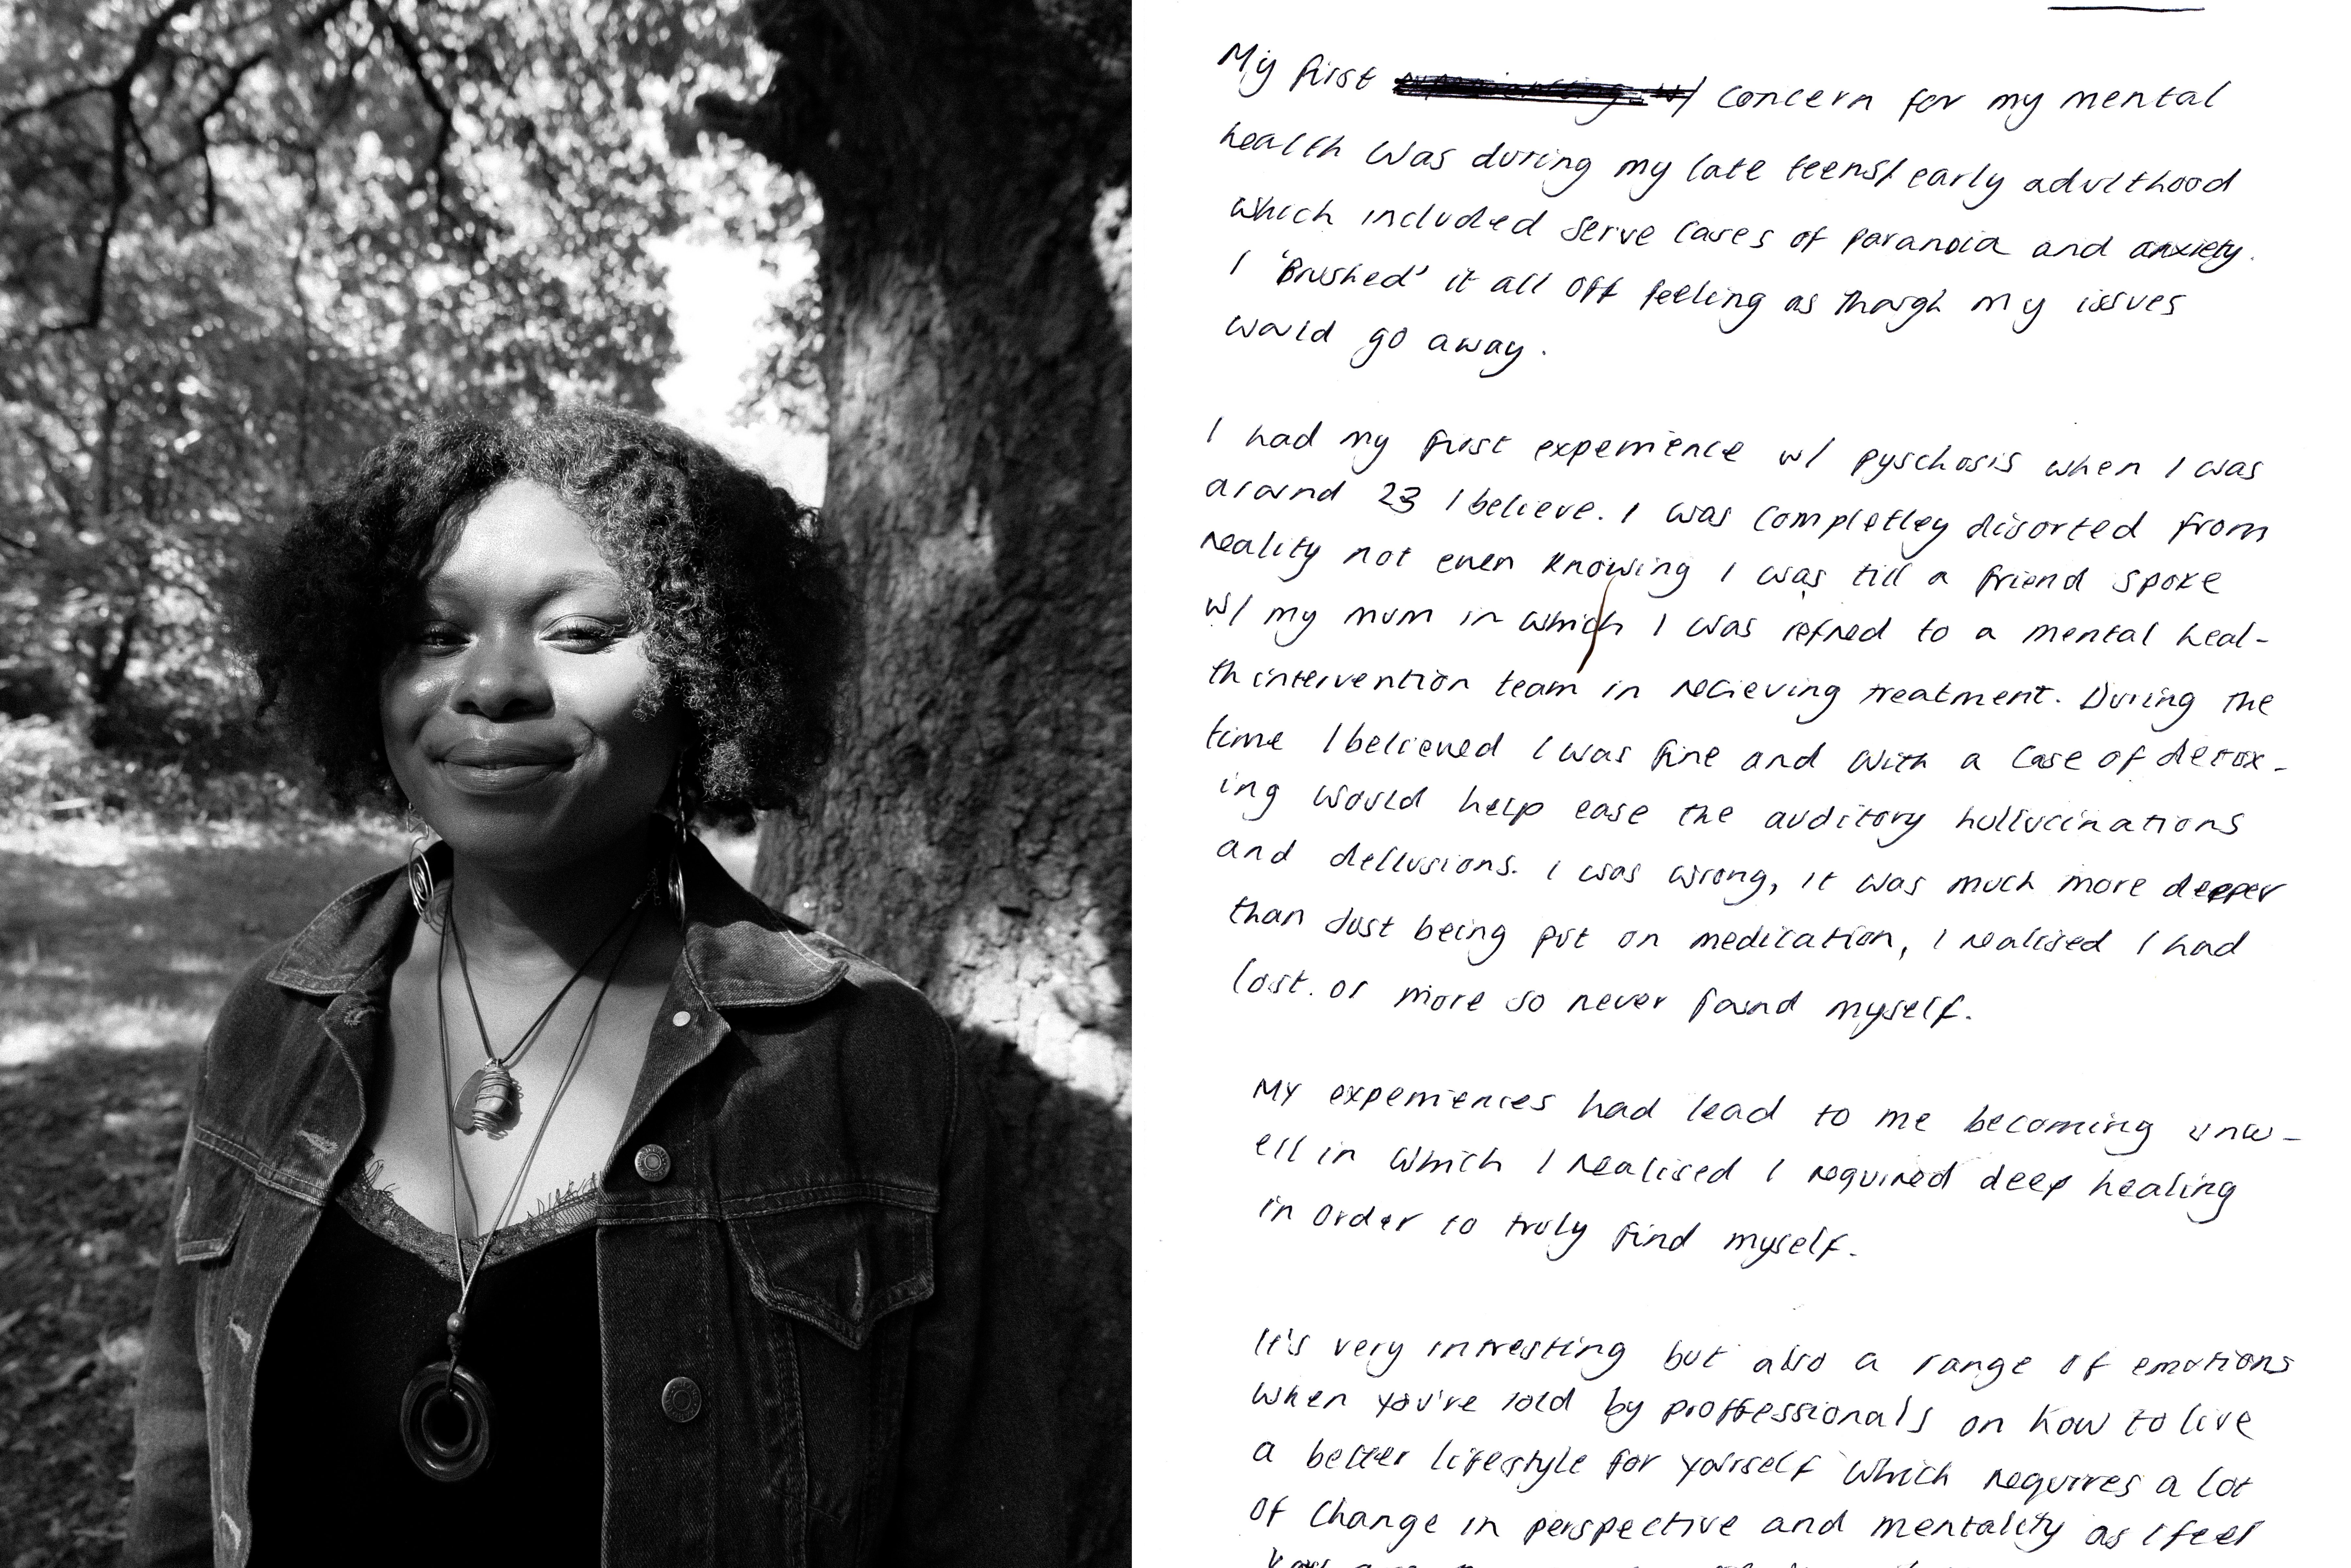 My first concern for my mental
health was during my late teens/ early adulthood
which included serve cases of paranoia and anxiety.
I 'Brushed' it all off feeling as though my issues
would go away.
I had my first experience w/ pyschosis when I was
around 23 I believe. I was completley disorted from
reality not even knowing I was till a friend spoke
w/ my mum in which I was refred to a mental heal-
th intervention team in recieving treatment. During the
time I believed I was fine and with a case of detox-
ing would help ease the auditory hullucinations
and dellusions. I was wrong, it was much more deeper
than Just being put on medication, I realised I had
lost. or more so never found myself.
My experiences had lead to me becoming unw-
ell in which I realised I required deep healing
in order to truly find myself.
It's very intresting but also a range of emotions
when you've told by proffessionals on how to live
a better lifestyle for yourself which requires a lot
of change in perspective and mentality as I feel